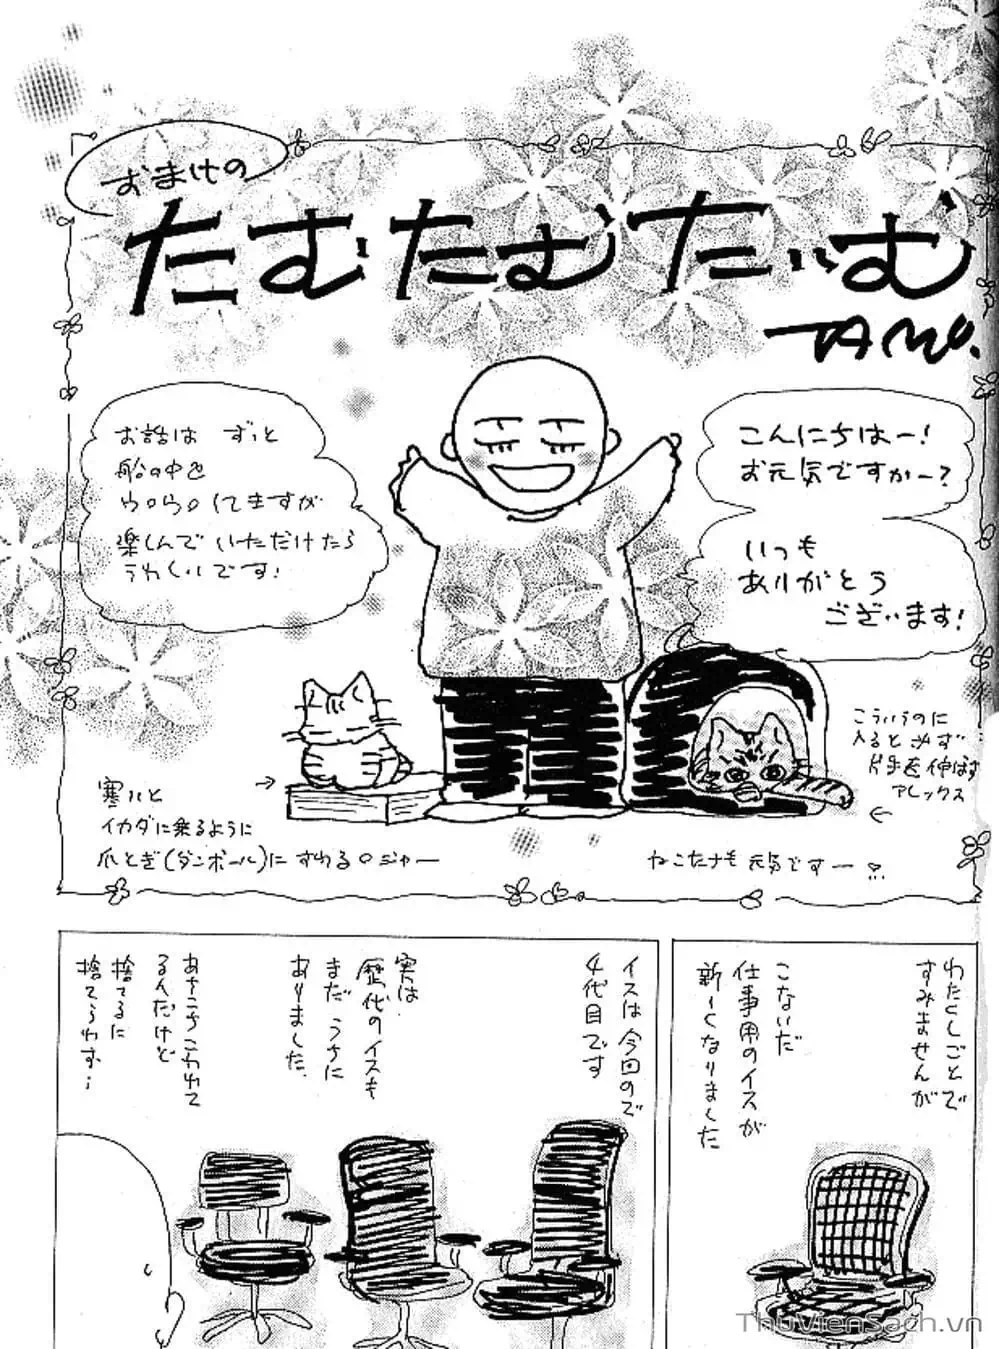 おまけの
たむたむたいむ
TAMU.
こんにちはー!
お元気ですかー?
いつも
ありがとう
ございます!
お話は ずっと
船の中を
ウロウロしてますが
楽しんでいただけたら
うれしいです!
こういうのに
入ると必ず
片手を伸ばす
アレックス
寒いと
イカダに乗るように
爪とぎ(ダンボール)にすわるロジャー
ねこたちも元気ですー
わたくしごとで
すみませんが
こないだ
仕事用のイスが
新しくなりました
イスは今回ので
4代目です
実は
歴代のイスも
まだうちに
ありました
あちこちこわれて
るんだけど
捨てるに
捨てられず…
ThuVienSach.vn